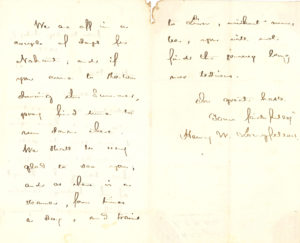 We are off in a
couple of days for
Nahant, and if
you come to Boston
during the Summer,
pray find time to
run down there.
We shall be very
glad to see you,
and as there is a
steamer, four times
a day, and trains
to Lynn, without number,
you will not
find the journey long
nor tedious.
In great haste
Yours faithfully
Henry W. Longfellow